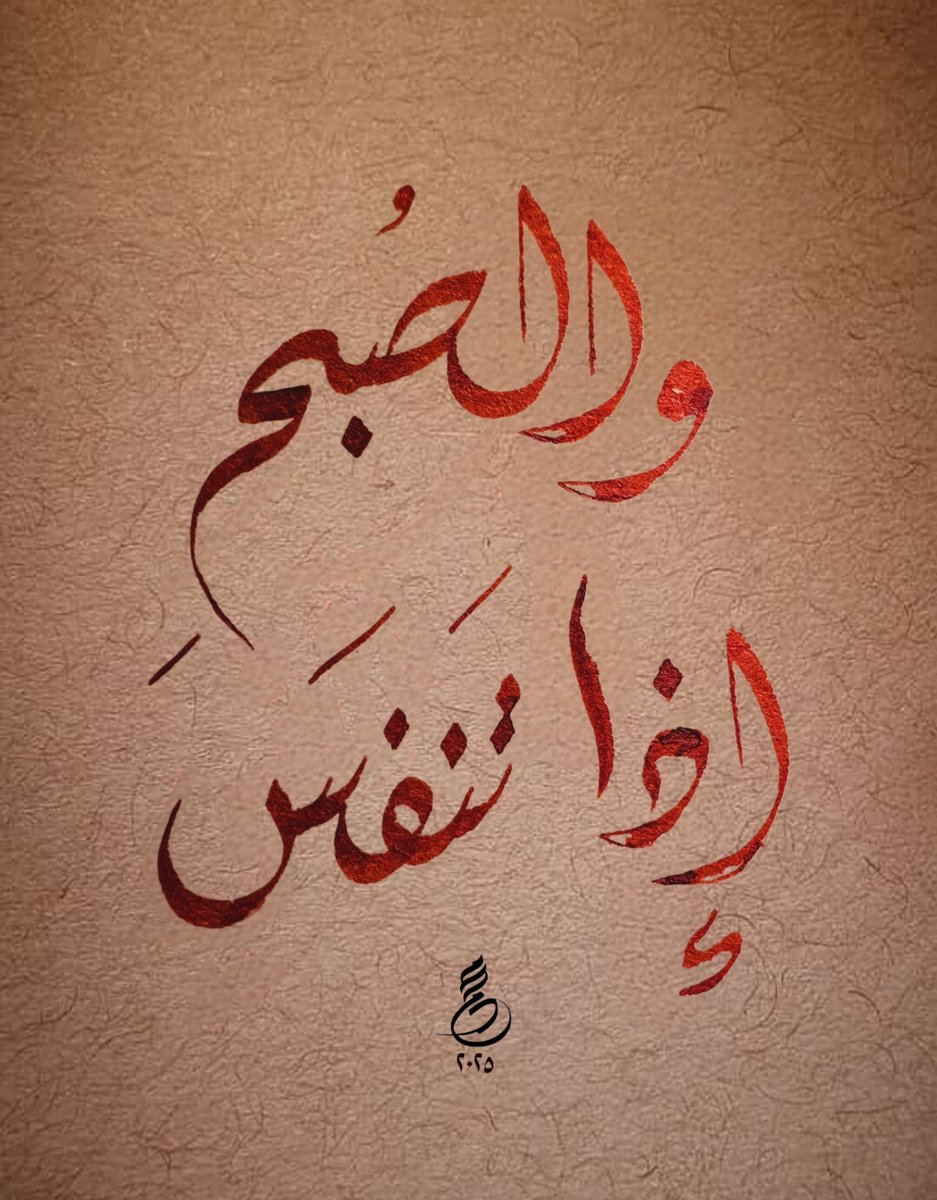 والصُبح
إذا تَنفَسَ
٢٠٢٥